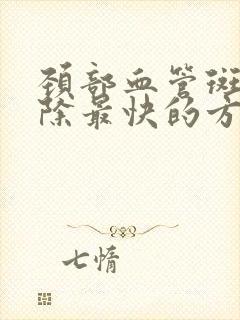 颈部血管斑
除最快的方
七情